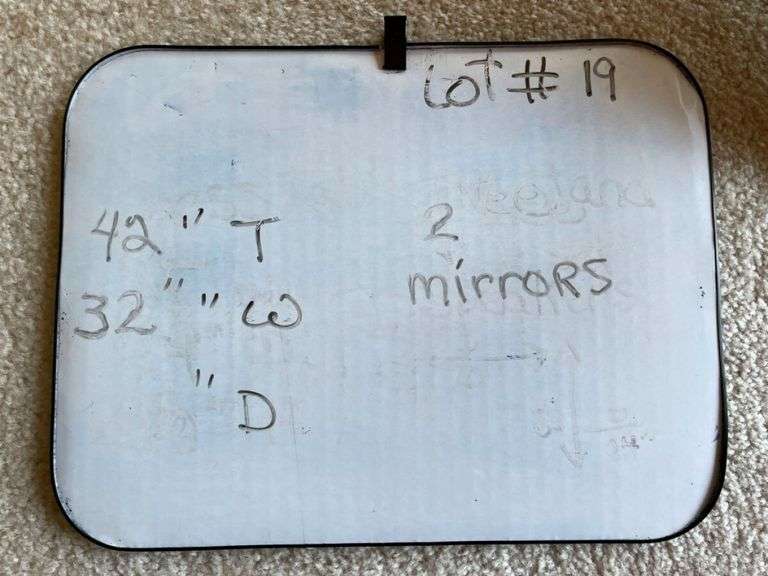 LOT # 19
42 " T
32 " " W
" D
2
mirroRS